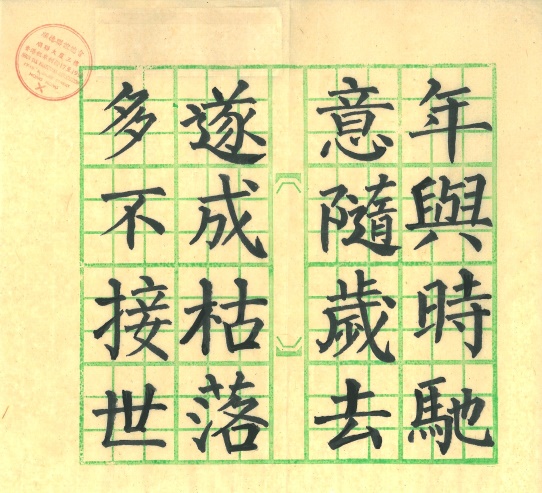 年與時馳
意隨歲去
遂成枯落
多不接世